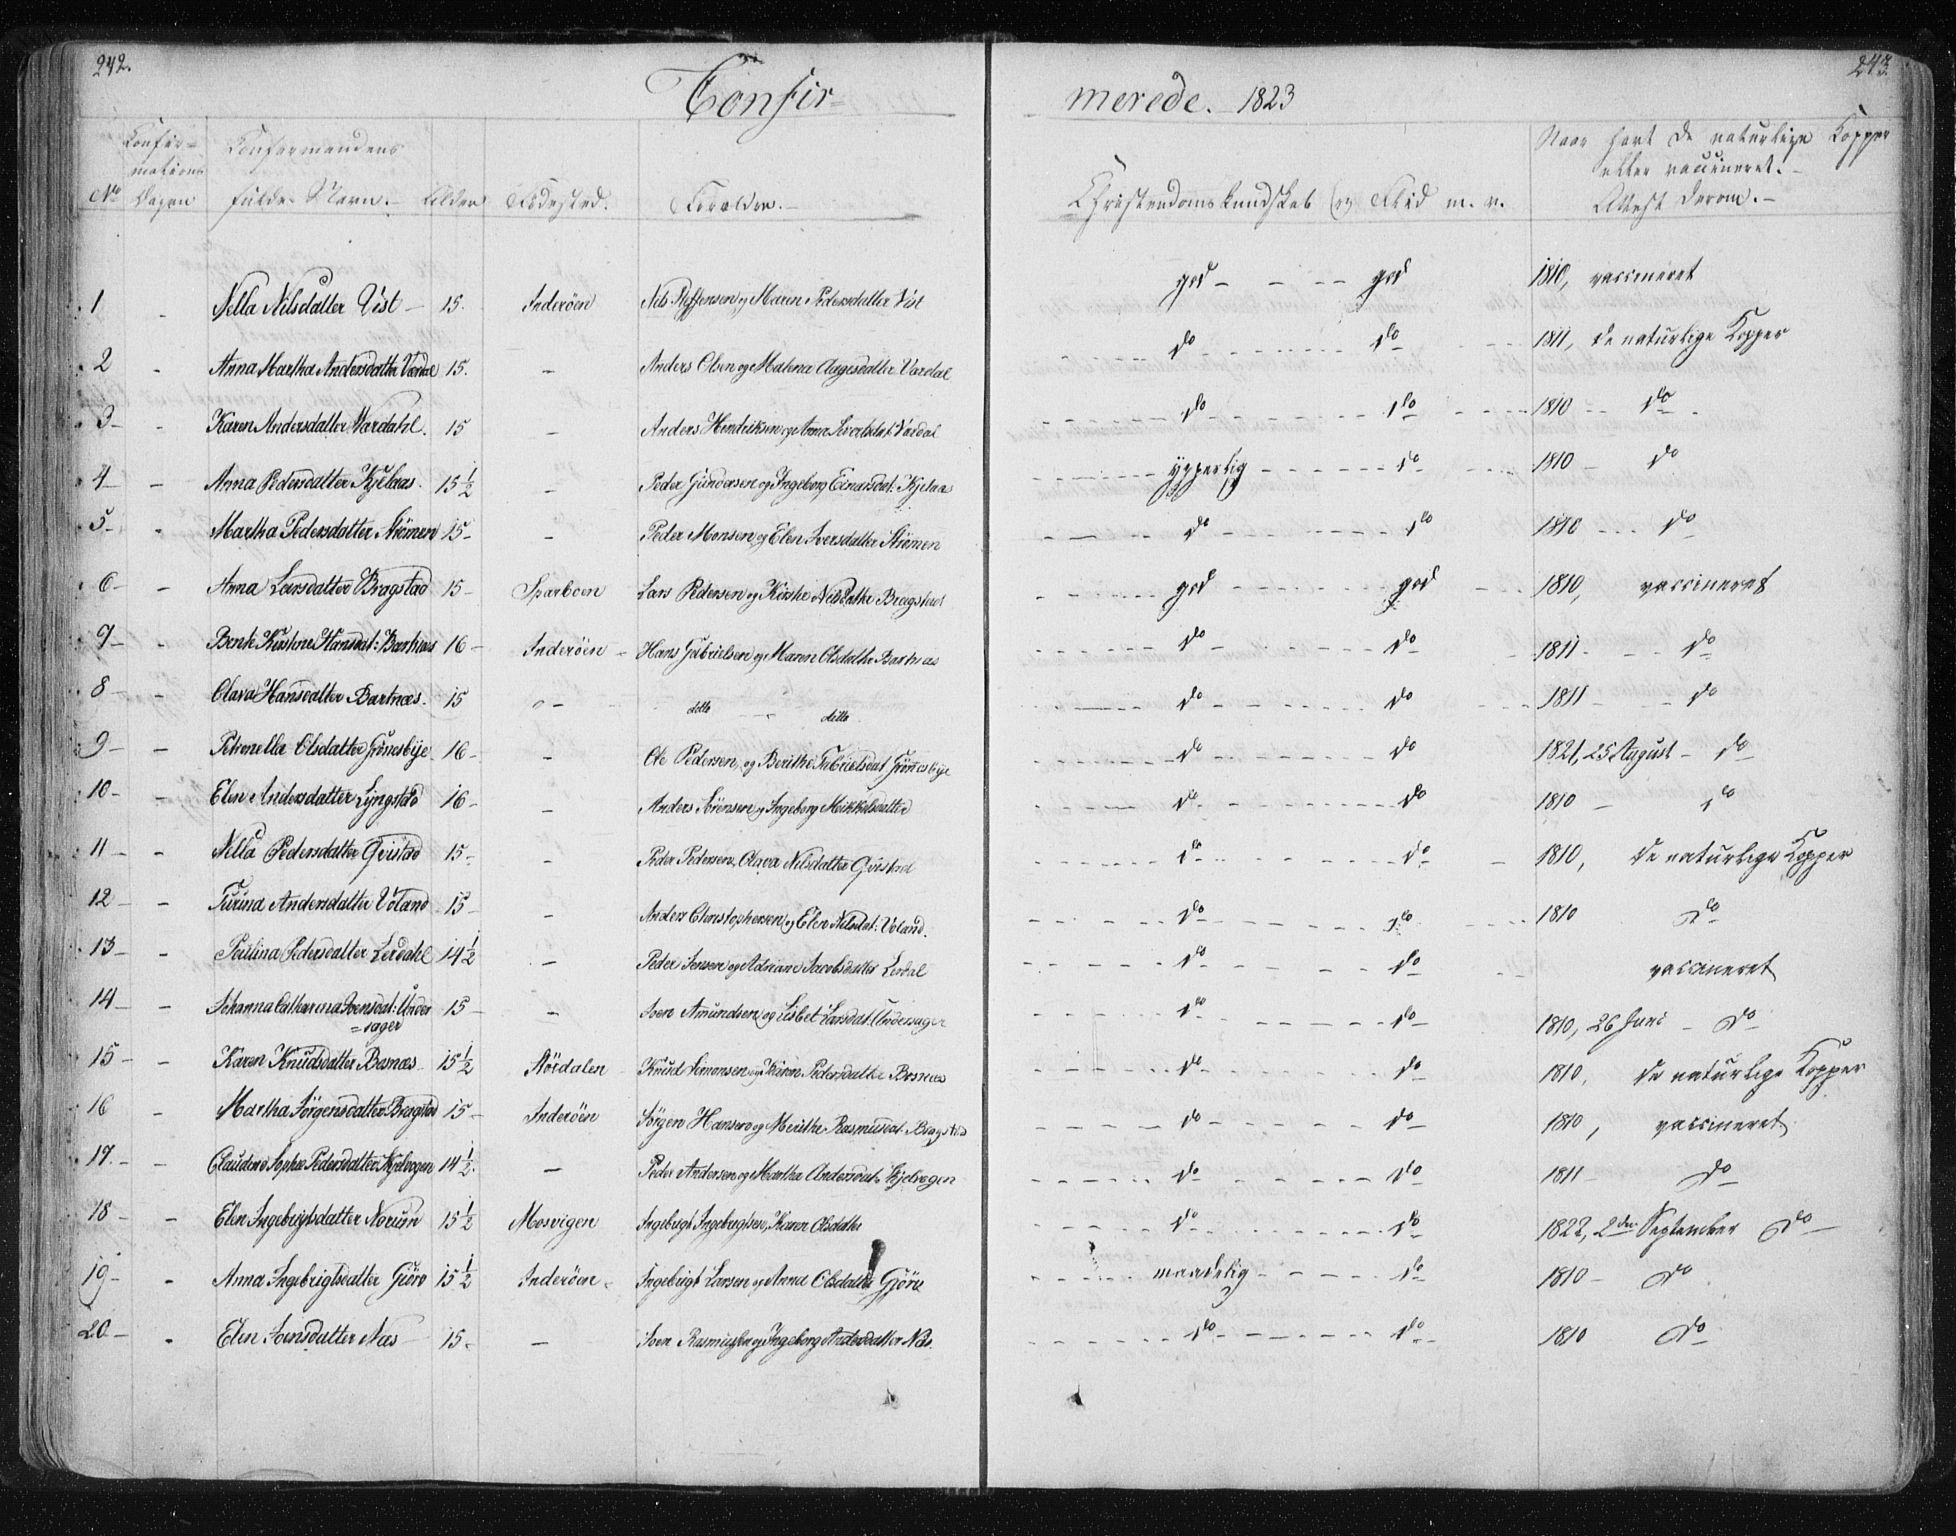 242.
Confir=
No
Confir=
mations
Dagen
Confirmandens
fulde Navn.
Alder
Fødested.
Forældre.
1 - Nella Nilsdatter Vist - 15. Inderöen Nils Steffensen og Maren Pedersdatter Vist
2 - Anna Martha Andersdatter Vardal 15. - Anders Olsen og Malena Aagesdatter Vardal
3 - Karen Andersdatter Wardahl. 15 - Anders Hendriksen og Anna Vardal
4 - - Anna Pedersdatter Kjelaas. 15 1/2 - Peder Gundersen og Ingeborg Einarsdat: Kjelaa
5 - - Martha Pedersdatter Strömen 15 - - Peder Monsen og Elen Iversdatter Strömen
6 - - Anna Larsdatter Bragstad 15 - Sparboen Lars Pedersen og Kirstie Nilsdatter Bragstad
7 - - Bente Kirstine Hansdat: Bartnæs 16 - Inderöen - Hans Gabrielsen og Maren Olsdatter Bartnæs
8 - - Olava Hansdatter Bartnæs. 15 - ditto ditto
9 - - Petronella Olsdatter Grönesbye 16 - - Ole Pedersen og Berithe Gabrielsdat Grönnesbye
10 - - Elen Andersdatter Lyngstad 16 - - Anders Sörensen og Ingeborg Mikkelsdatter
11 - - Nella Pedersdatter Qvistad 15 - - Peder Pedersen, Olava Nilsdatter Qvistad
12 - - Andersdatter Voland 15 - - Anders Christophersen og Elen Nilsdat: Voland.
13 - - Paulina Pedersdatter Lerdahl 14 1/2 - Peder Jensen og Adriane Jacobsdatter Lerdal
14 - - Johanna Catharina Svensdat: Under 15 - - Sven Amundsen og Lisbet Larsdat: Undersager
=sager
15 - - Karen Knudsdatter Besnæs 15 1/2 Stördalen Knud Simonsen og Karen Pedersdatter Besnæs
16 - Martha Jörgensdatter Bragstad 15 - Inderöen Jörgen Hansen og Merithe Rasmusdat. Bragstad
17. - - Sophie Pedersdatter Kjelvogen 14 1/2. - Peder Andersen og Martha Andersdat: Kjelvogen
18 - - Elen Ingebrigtsdatter Norum 15 1/2 Mosvigen Ingebrigt Ingebrigtsen, Karen Olsdatter
19 - - Anna Ingebrigtsdatter Giörv 15 1/2 Inderöen Ingebrigt Larsen og Anna Olsdatter Gjörv
20 - - Elen Svensdatter Næs 15. - Sven Rasmussen og Ingeborg Andersdatter Næs.
243.
merede. 1823
Christendoms kundskab og Flid m. v.
Naar havt de naturlige Kopper
eller vaccineret. -
Attest derom. -
god - - - - god 1810, vaccineret
do do 1811, de naturlige Kopper
do do 1810 - - do
ypperlig do 1810 - do
do do 1810 - - - do
god god 1810, vaccineret
do do 1811 - - do
do do 1811 - - do
do do 1821, 25 August - do
do do 1810 - do
do do 1810, de naturlige Kopper
do do 1810 do
do do vaccineret
do do 1810, 26 Juni - do
do do 1810, de naturlige Kopper
do do 1810, vaccineret
do do 1811 - do
do do 1822, 2den September do
maadelig do 1810 - do
do do 1810 do